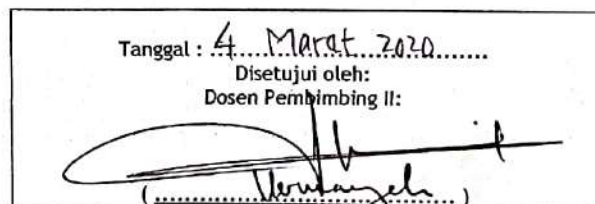 Tanggal : 4 Maret 2020
Disetujui oleh:
Dosen Pembimbing II:
(....................)